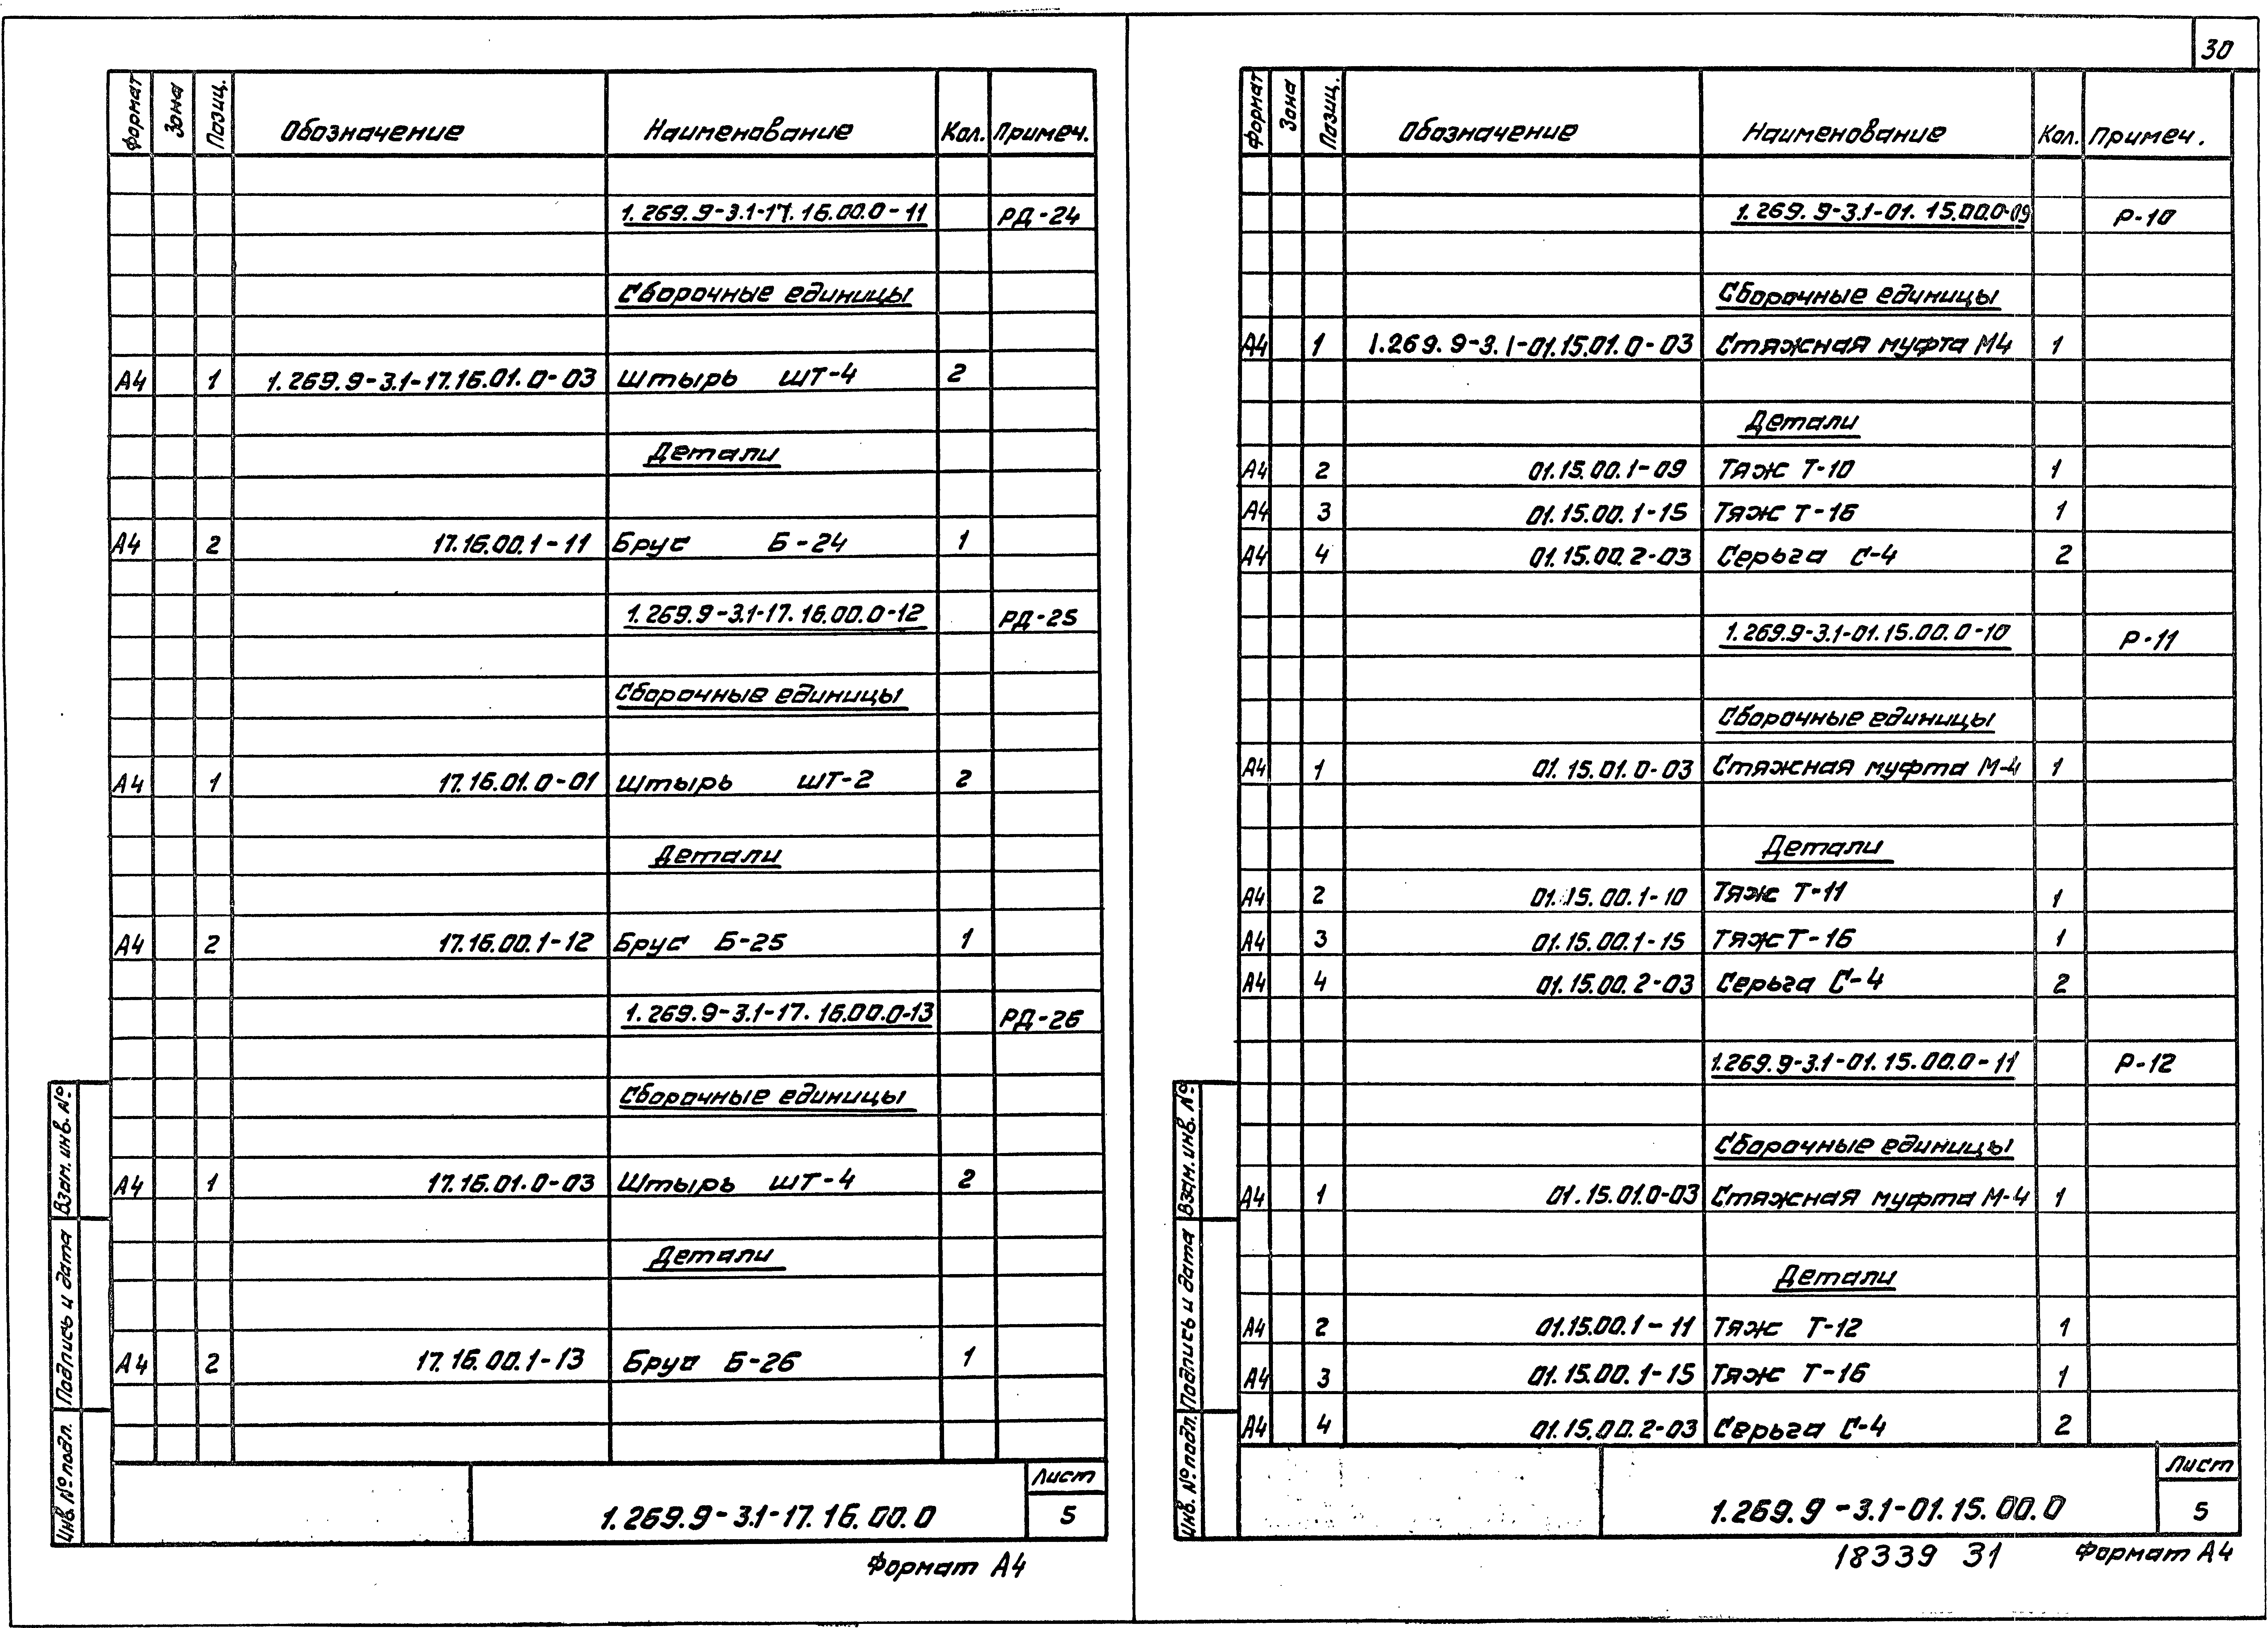 Формат Зона Позиц. Обозначение Наименование Кол. Примеч.
1.269.9-3.1-17.16.00.0-11 РД-24
Сборочные единицы
А4 1 1.269.9-3.1-17.16.01.0-03 Штырь ШТ-4 2
Детали
А4 2 17.16.00.1-11 Брус Б-24 1
1.269.9-3.1-17.16.00.0-12 РД-25
Сборочные единицы
А4 1 17.16.01.0-01 Штырь ШТ-2 2
Детали
А4 2 17.16.00.1-12 Брус Б-25 1
1.269.9-3.1-17.16.00.0-13 РД-26
Сборочные единицы
А4 1 17.16.01.0-03 Штырь ШТ-4 2
Детали
А4 2 17.16.00.1-13 Брус Б-26 1
Взам. инв. №
Подпись и дата
Инв. № подл.
1.269.9-3.1-17.16.00.0
Лист
5
Формат А4
30
Формат Зона Позиц. Обозначение Наименование Кол. Примеч.
1.269.9-3.1-01.15.00.0-09 Р-10
Сборочные единицы
А4 1 1.269.9-3.1-01.15.01.0-03 Стяжная муфта М4 1
Детали
А4 2 01.15.00.1-09 Тяж Т-10 1
А4 3 01.15.00.1-15 Тяж Т-16 1
А4 4 01.15.00.2-03 Серьга С-4 2
1.269.9-3.1-01.15.00.0-10 Р-11
Сборочные единицы
А4 1 01.15.01.0-03 Стяжная муфта М-4 1
Детали
А4 2 01.15.00.1-10 Тяж Т-11 1
А4 3 01.15.00.1-15 Тяж Т-16 1
А4 4 01.15.00.2-03 Серьга С-4 2
1.269.9-3.1-01.15.00.0-11 Р-12
Сборочные единицы
А4 1 01.15.01.0-03 Стяжная муфта М-4 1
Детали
А4 2 01.15.00.1-11 Тяж Т-12 1
А4 3 01.15.00.1-15 Тяж Т-16 1
А4 4 01.15.00.2-03 Серьга С-4 2
Взам. инв. №
Подпись и дата
Инв. № подл.
1.269.9-3.1-01.15.00.0
Лист
5
18339 31 Формат А4